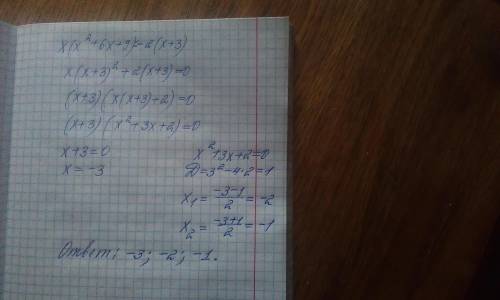 x(x²+6x+9)=-2(x+3)
x(x+3)²+2(x+3)=0
(x+3)(x(x+3)+2)=0
(x+3)(x²+3x+2)=0
x+3=0 x²+3x+2=0
x=-3 D=3²-4·2=1
x₁= -3-1/2 =-2
x₂= -3+1/2 =-1
Ответ: -3; -2; -1.